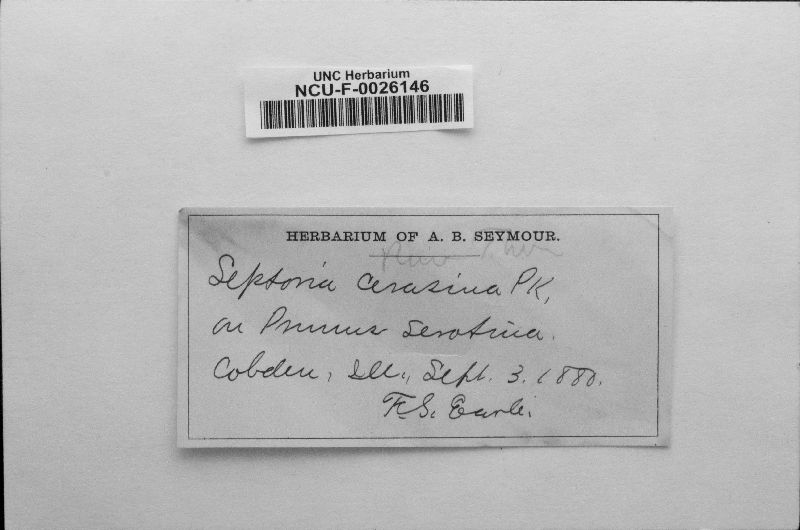 UNC Herbarium
NCU-F-0026146
HERBARIUM OF A. B. SEYMOUR.
Septoria cerasina PK,
on Prunus serotina.
Cobden, Ill., Sept. 3. 1880.
F.S. Earle.